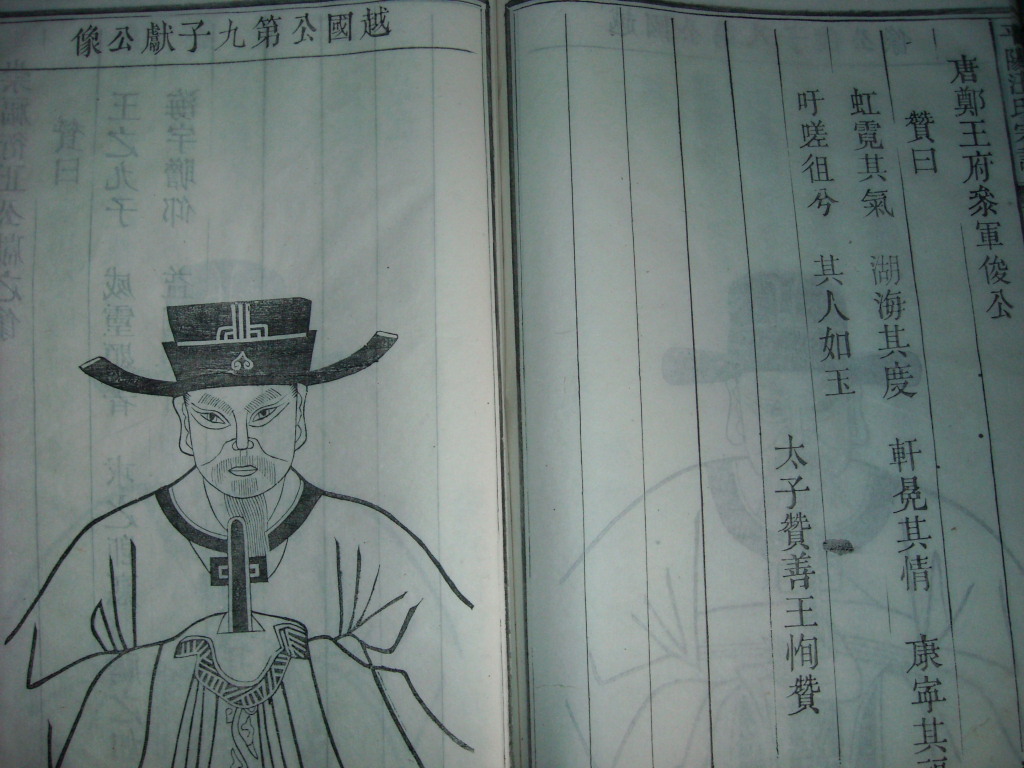 陽汪氏宗
唐鄭王府叅軍俊公
贊曰
虹霓其氣 湖海其度 軒冕其情 康寕其福
吁嗟徂兮 其人如玉
太子贊善王恂贊
越國公第九子獻公像